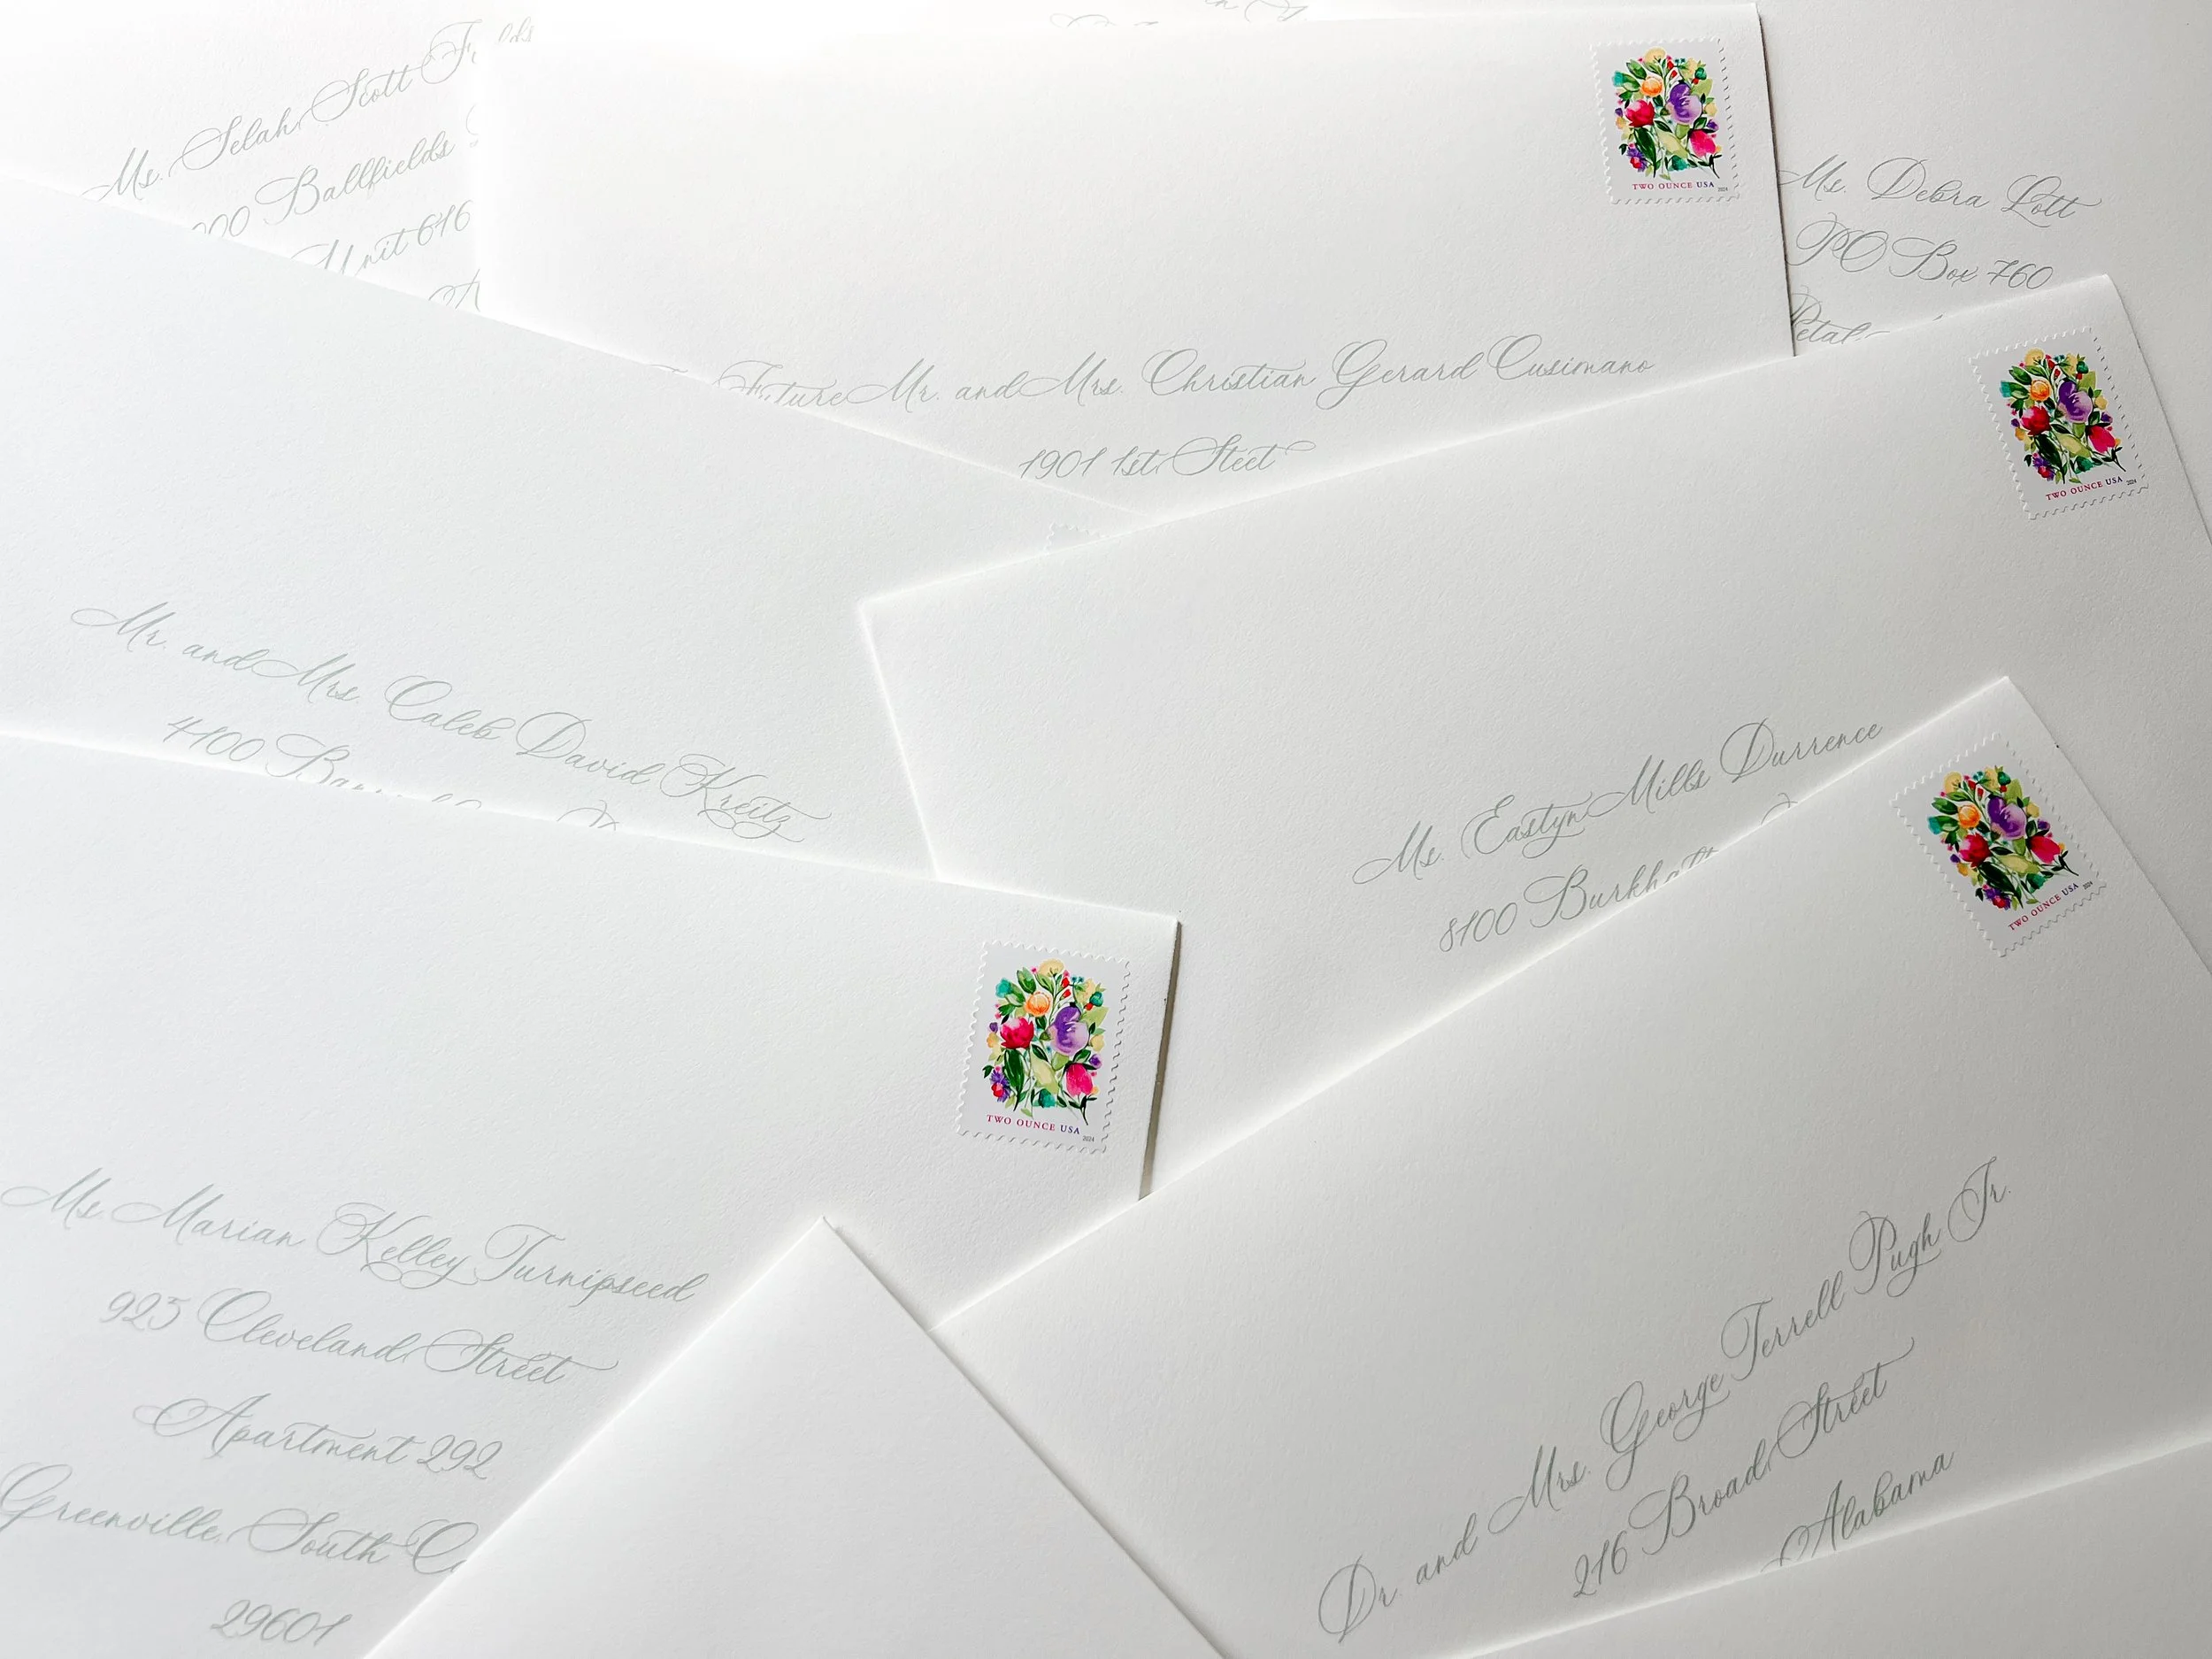 Ms. Selah Scott
Ballfields
Unit 616
TWO OUNCE USA 2024
Future Mr. and Mrs. Christian Gerard Cusimano
1901 1st Steet
Ms. Debra Lott
PO Box 760
TWO OUNCE USA 2024
Mr. and Mrs. Caleb David Kreitz
4100
Ms. Eastyn Mills Durrence
8100
TWO OUNCE USA 2024
TWO OUNCE USA 2024
Ms. Marian Kelley Turnipseed
925 Cleveland Street
Apartment 292
Greenville, South
29601
Dr. and Mrs. George Terrell Pugh Jr.
216 Broad Street
Alabama